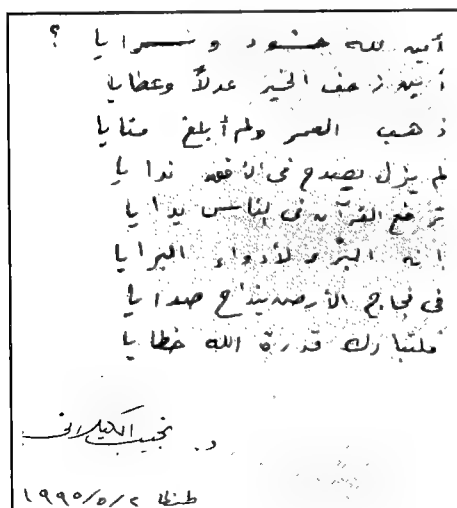 أين لله حشود وسرايا ؟
أين زحف الخير عدلاً وعطايا
ذهب العمر ولم أبلغ منايا
لم يزل يصدح فى الأفق ندايا
ترفع القرآن فى الناس يدايا
إنه البرء لأدواء البرايا
فى فجاج الأرض ينداح صدايا
فلتبارك قدرة الله خطايا
د. نجيب الكيلانى
طنطا ١٩٩٥/٥/٢